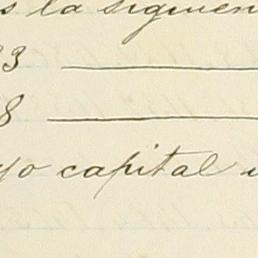 la siguien
3
8
yo capital